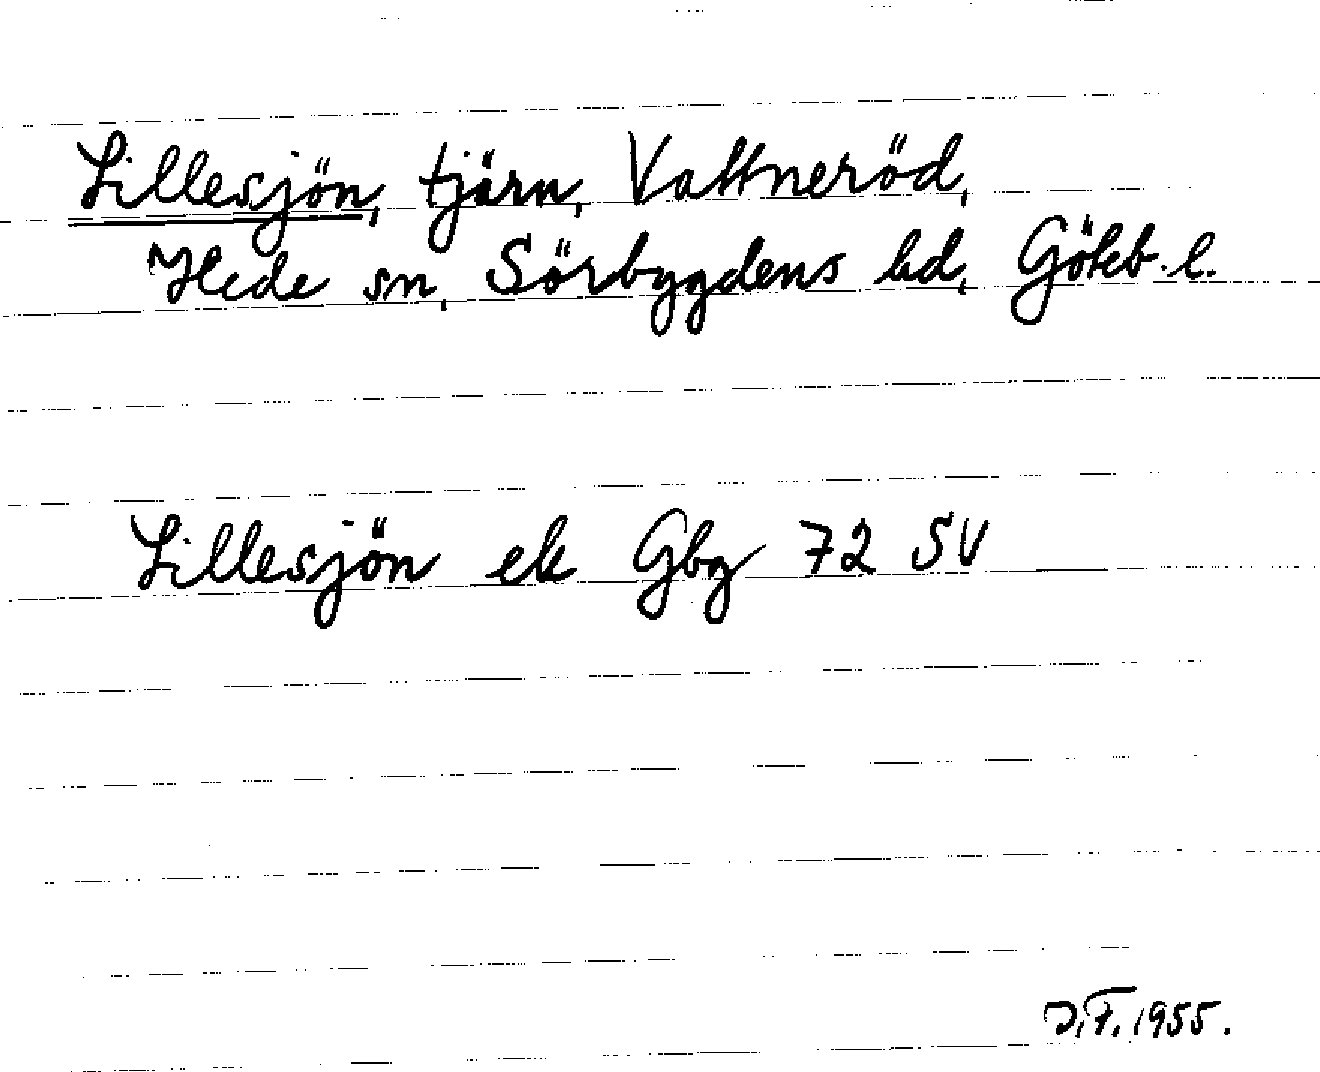 Lillesjön, tjärn, Vattneröd,
Hede sn, Sörbygdens hd, Göteb. l.
Lillesjön ek Gbg 72 SV
J.F. 1955.